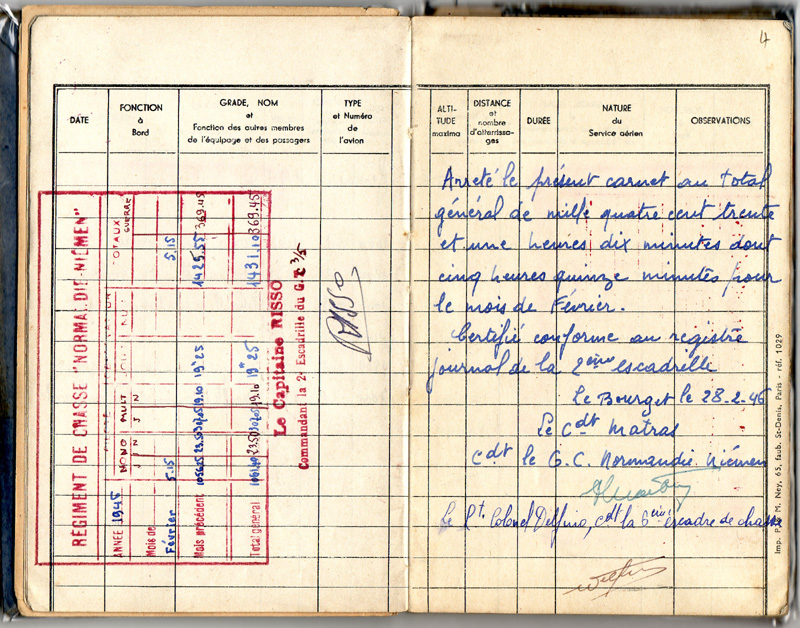 4
DATE
FONCTION
à
Bord
GRADE, NOM
et
Fonction des autres membres
de l'équipage et des passagers
TYPE
et Numéro
de
l'avion
REGIMENT DE CHASSE "NORMANDIE-NIEMEN"
TOTAUX
GUERRE
MONO MULT
J N J N
ANNÉE 1945
Mois de
Février 5.15 5.15
Mois précédent 19.10 19.25 1425.55 369.45
Total général 19.10 19.25 1431.10 369.45
Le Capitaine RISSO
Commandant la 2e Escadrille du G.C 3/5
Risso
ALTI-
TUDE
maxima
DISTANCE
et
nombre
d'atterrissa-
ges
DURÉE
NATURE
du
Service aérien
OBSERVATIONS
Arreté le présent carnet au total
général de mille quatre cent trente
et une heures dix minutes dont
cinq heures quinze minutes pour
le mois de Février.
Certifié conforme au registre
journal de la 2ème escadrille
Le Bourget le 28-2-46
Le Cdt Matras
Cdt le G.C. Normandie Niémen
Le Lt. Colonel Delfino, cdt la 6ème escadre de chasse
Imp. P. M. Ney, 65, faub. St-Denis, Paris - réf. 1029